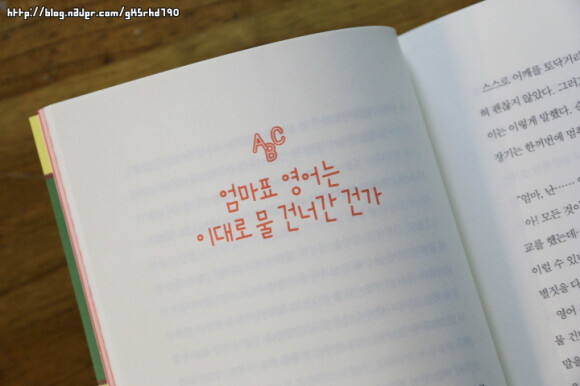 http://blog.naver.com/gk5rhd790
ABC
엄마표 영어는
이대로 물 건너간 건가
스스로 어깨를 토닥거리
혀 괜찮지 않았다. 그리고
이는 이렇게 말했다.
장기는 한꺼번에
"엄마, 난……
아! 모든 것이
교를 했는데
이럴 수 있
별짓을 다
영어
물 건너
말을